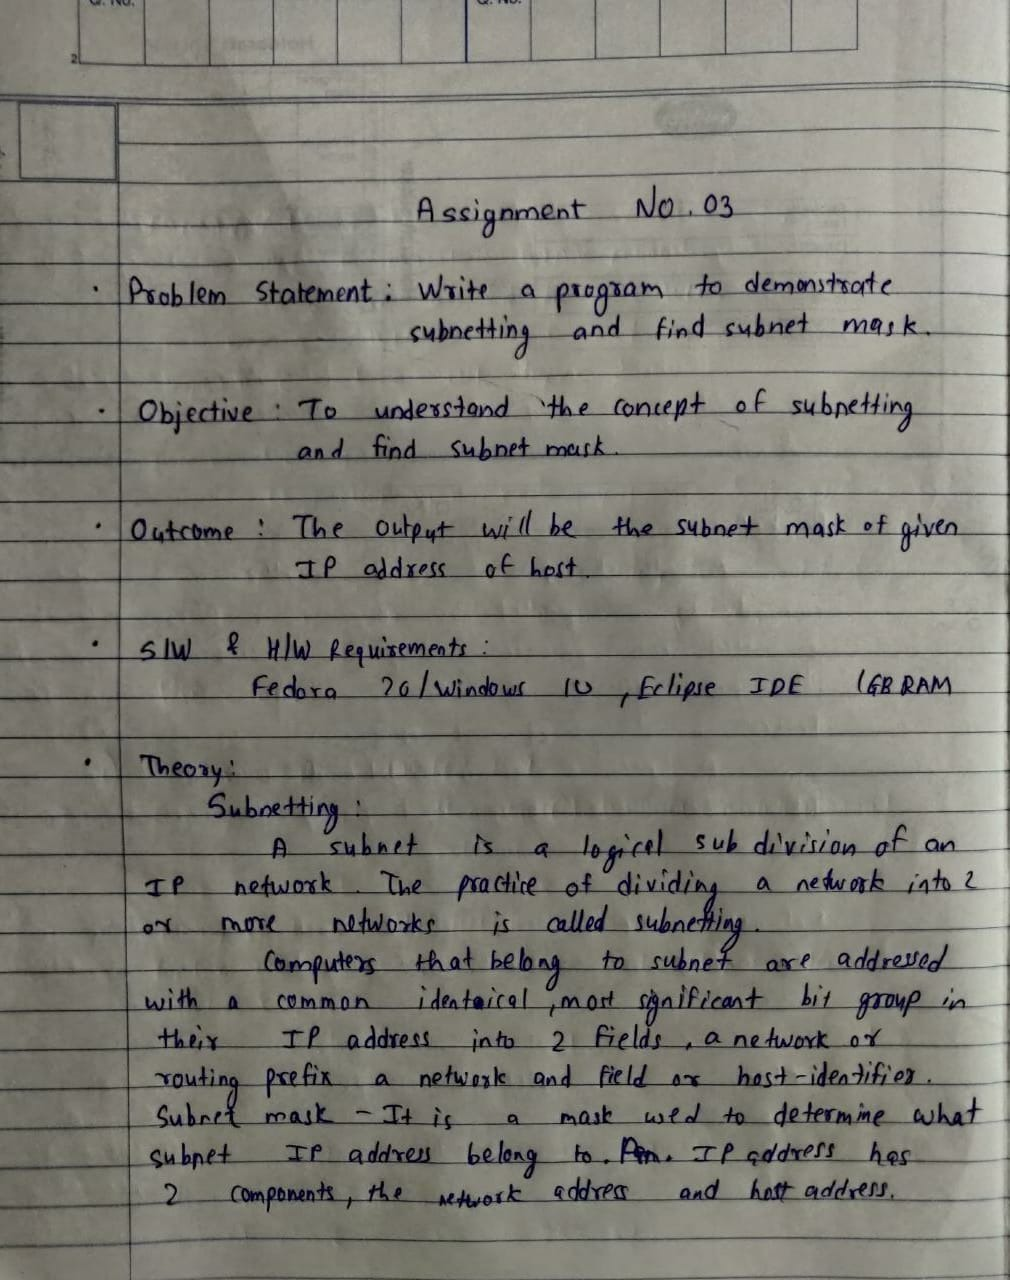 Q. No.
Q. No.
2
Assignment No. 03
• Problem Statement : Write a program to demonstrate
subnetting and find subnet mask.
• Objective : To understand the concept of subnetting
and find subnet mask.
• Outcome : The output will be the subnet mask of given
IP address of host.
• S/W & H/W Requirements :
Fedora 20/Windows 10, Eclipse IDE 1GB RAM
• Theory :
Subnetting :
A subnet is a logical sub division of an
IP network. The practice of dividing a network into 2
or more networks is called subnetting.
Computers that belong to subnet are addressed
with a common identaical, most significant bit group in
their IP address into 2 fields, a network or
routing prefix a network and field or host-identifier.
Subnet mask - It is a mask used to determine what
subnet IP address belong to. IP address has
2 components, the network address and host address.